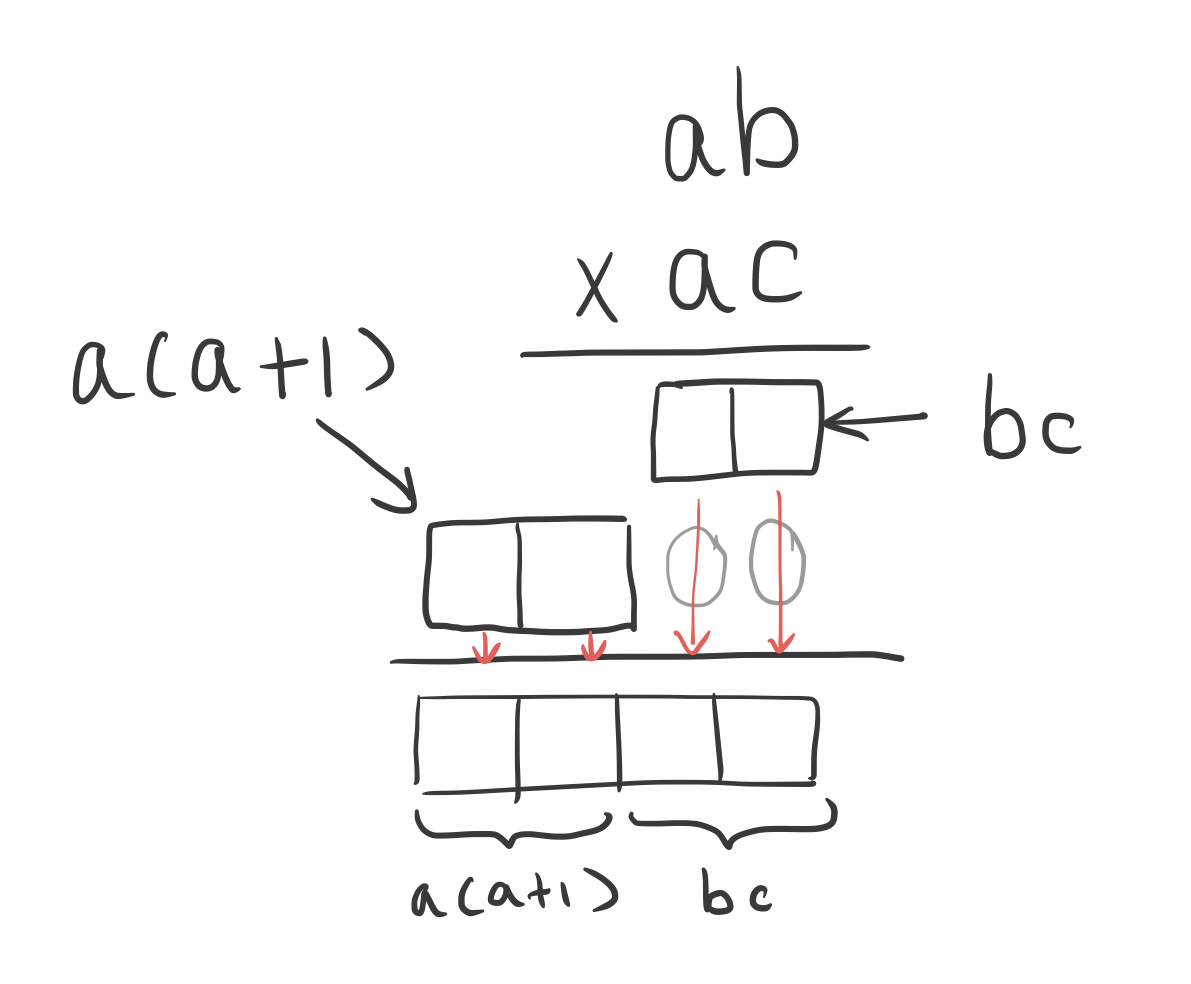 ab
x ac
a(a+1)
bc
00
a(a+1) bc